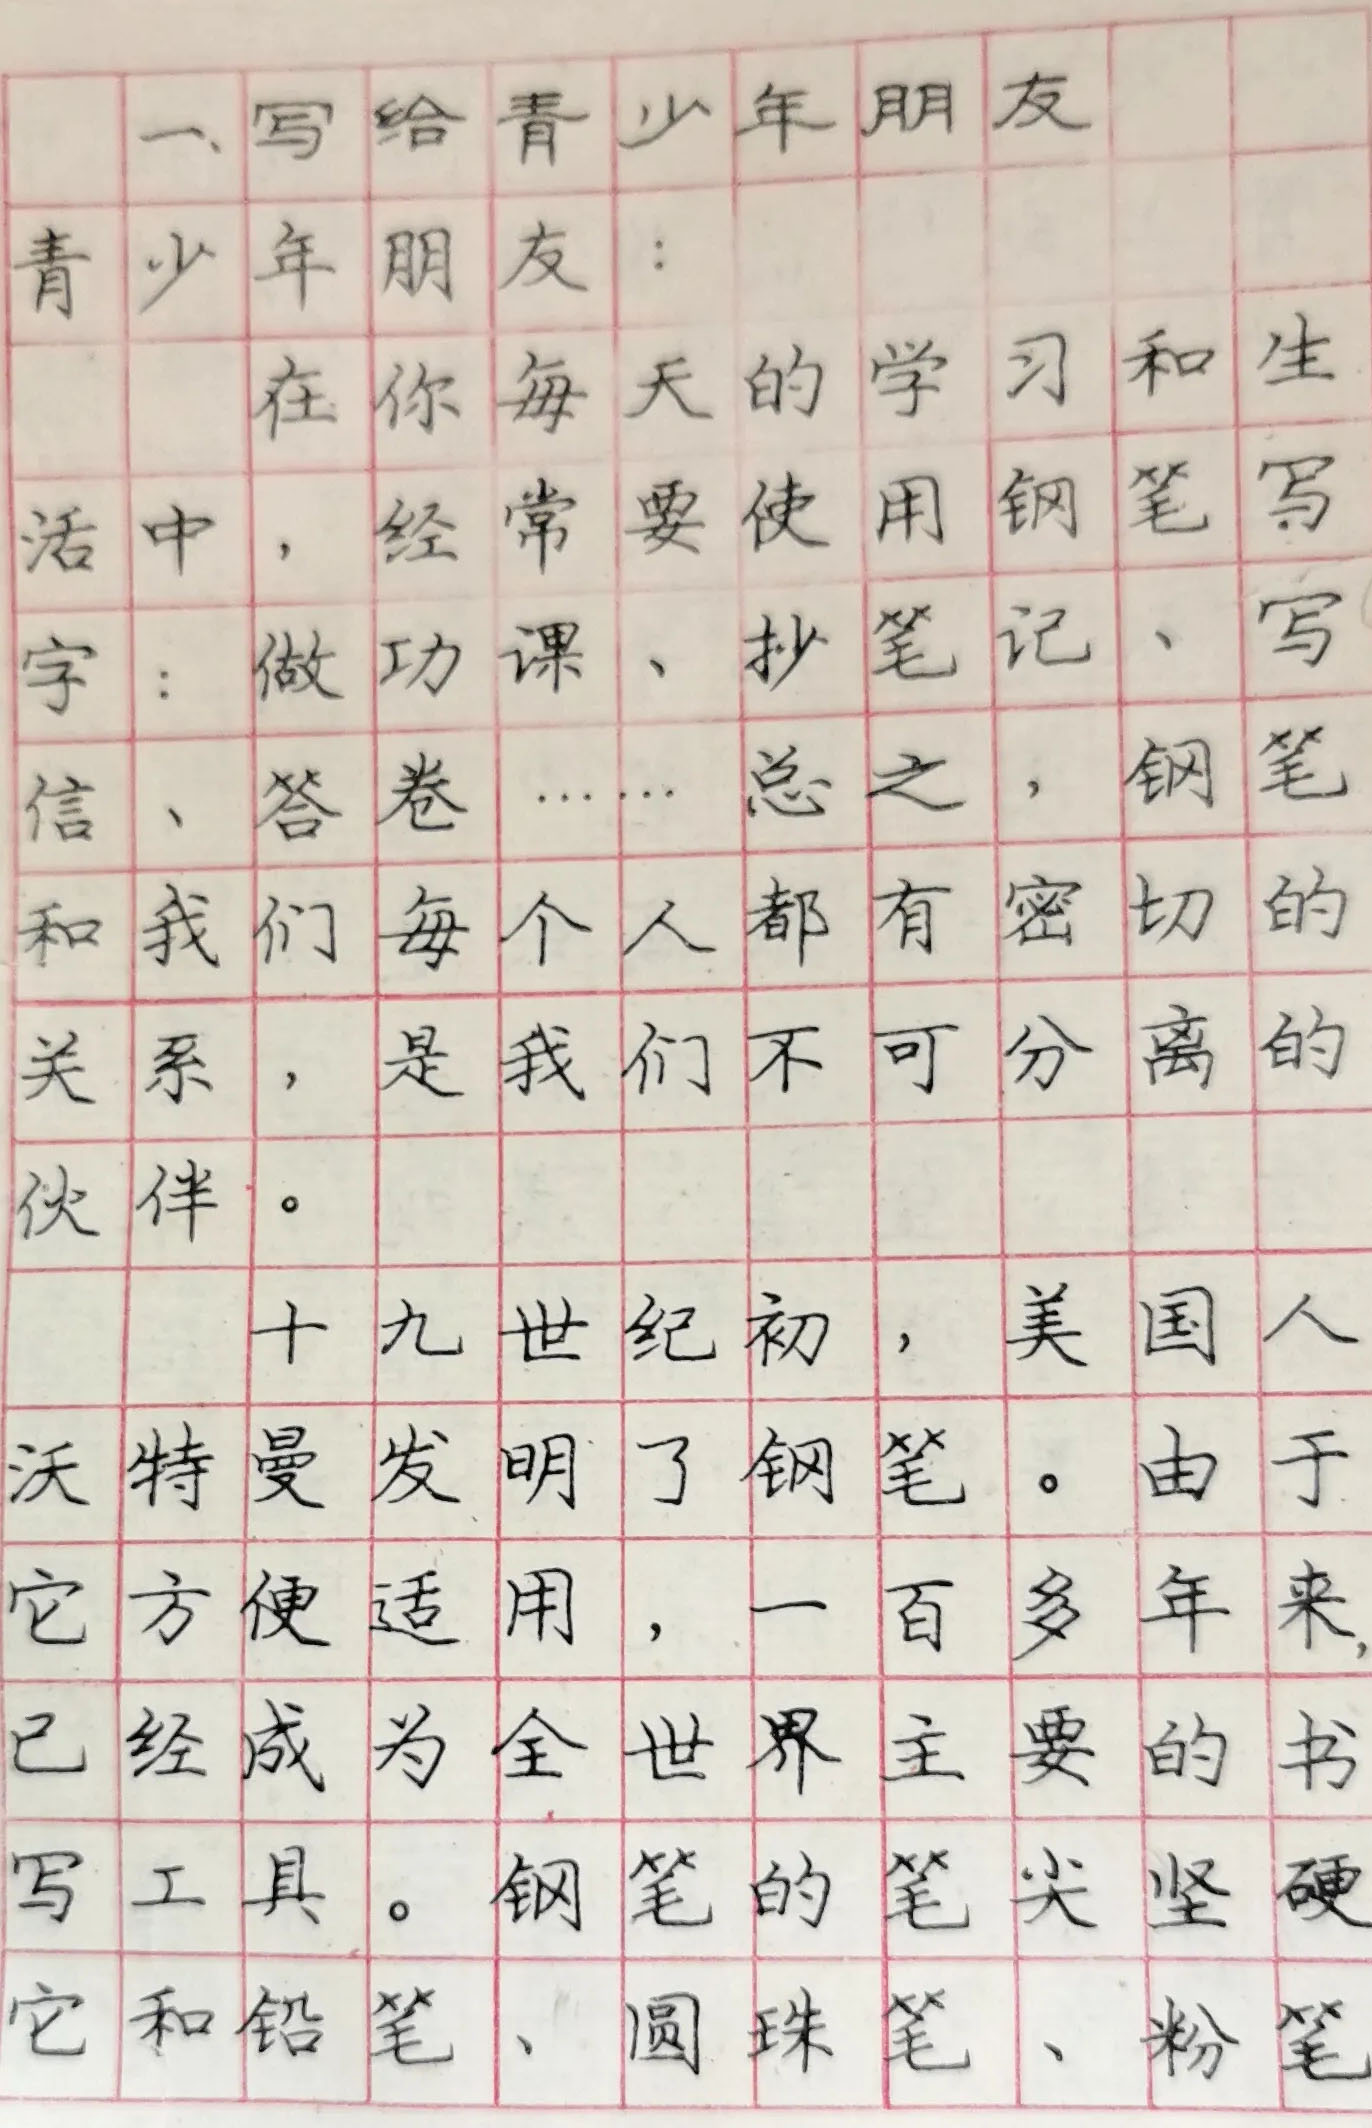 一、写给青少年朋友
青少年朋友：
在你每天的学习和生
活中，经常要使用钢笔写
字：做功课、抄笔记、写
信、答卷……总之，钢笔
和我们每个人都有密切的
关系，是我们不可分离的
伙伴。
十九世纪初，美国人
沃特曼发明了钢笔。由于
它方便适用，一百多年来，
已经成为全世界主要的书
写工具。钢笔的笔尖坚硬
它和铅笔、圆珠笔、粉笔